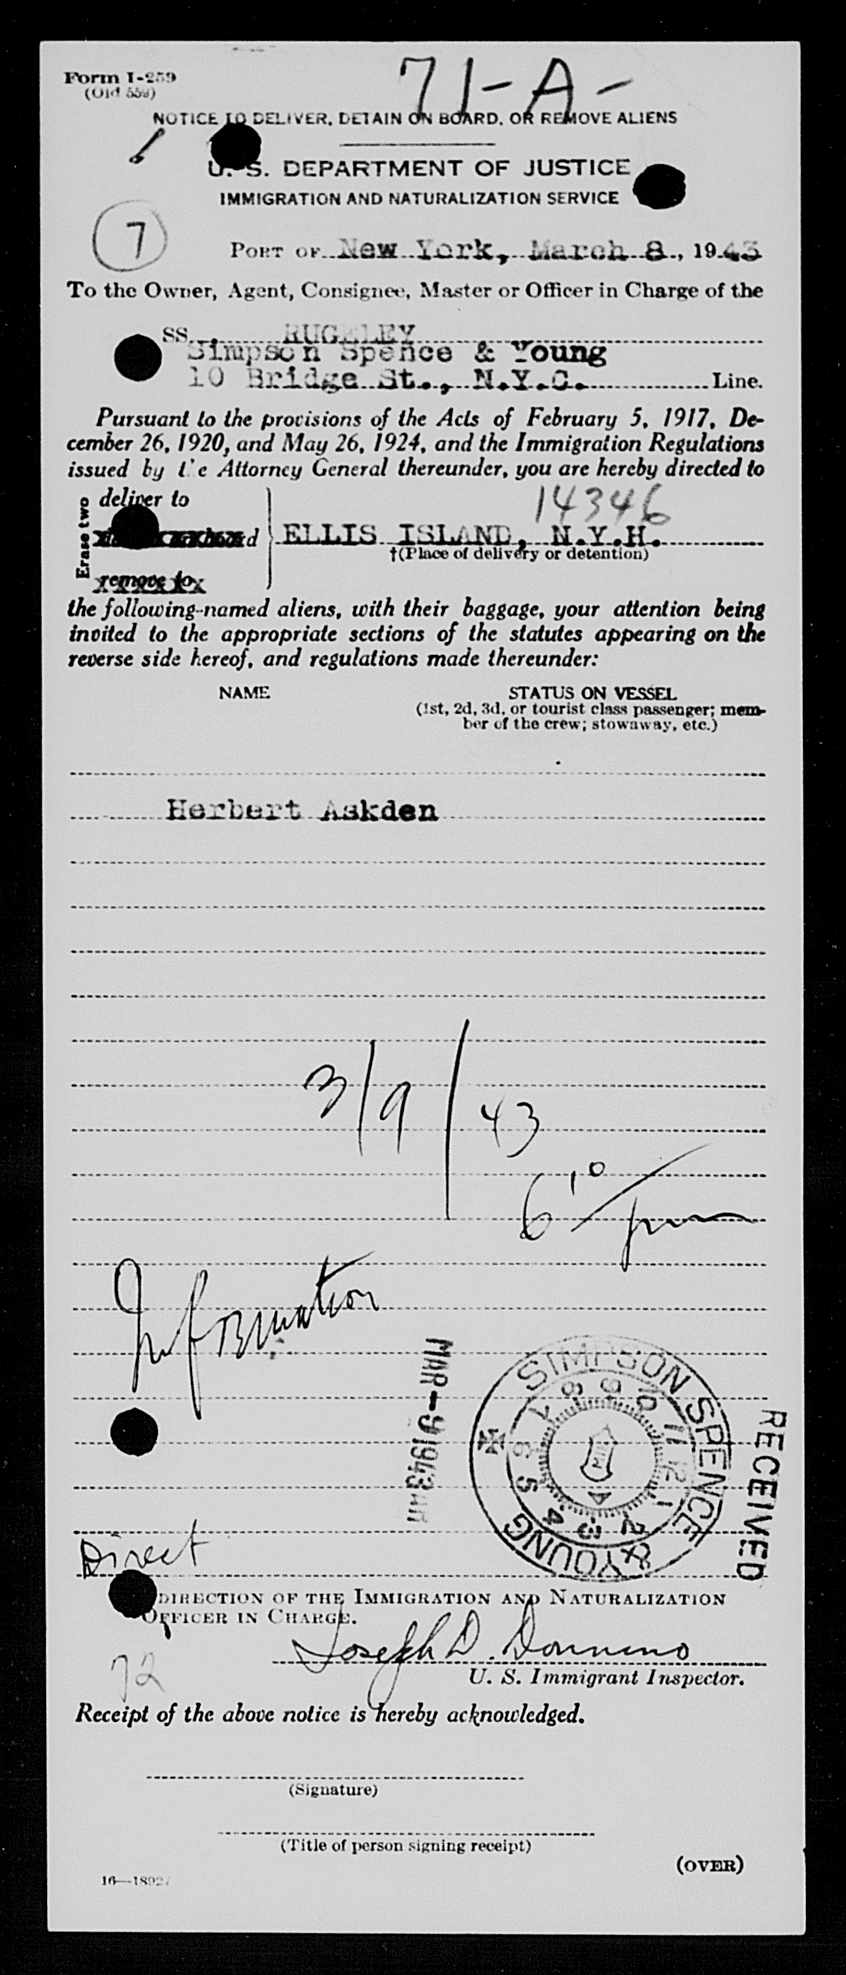 71-A-
Form I-259
(Old 559)
NOTICE TO DELIVER, DETAIN ON BOARD, OR REMOVE ALIENS
U. S. DEPARTMENT OF JUSTICE
IMMIGRATION AND NATURALIZATION SERVICE
7
PORT OF New York, March 8, 1943
To the Owner, Agent, Consignee, Master or Officer in Charge of the
SS. RUGELEY
Simpson Spence & Young
10 Bridge St., N.Y.C. Line.
Pursuant to the provisions of the Acts of February 5, 1917, De-
cember 26, 1920, and May 26, 1924, and the Immigration Regulations
issued by the Attorney General thereunder, you are hereby directed to
14346
Erase two
deliver to
ELLIS ISLAND, N.Y.H.
†(Place of delivery or detention)
remove to
the following-named aliens, with their baggage, your attention being
invited to the appropriate sections of the statutes appearing on the
reverse side hereof, and regulations made thereunder:
NAME STATUS ON VESSEL
(1st, 2d, 3d, or tourist class passenger; mem-
ber of the crew; stowaway, etc.)
Herbert Askden
3/9/43
6 10/pm
Information
MAR-9 1943
SIMPSON SPENCE & YOUNG
1 2 3 4 5 6 7 8 9 10 11 12
RECEIVED
Direct
DIRECTION OF THE IMMIGRATION AND NATURALIZATION
OFFICER IN CHARGE.
Joseph D. Donnino
U. S. Immigrant Inspector.
72
Receipt of the above notice is hereby acknowledged.
(Signature)
(Title of person signing receipt)
(OVER)
16—18927